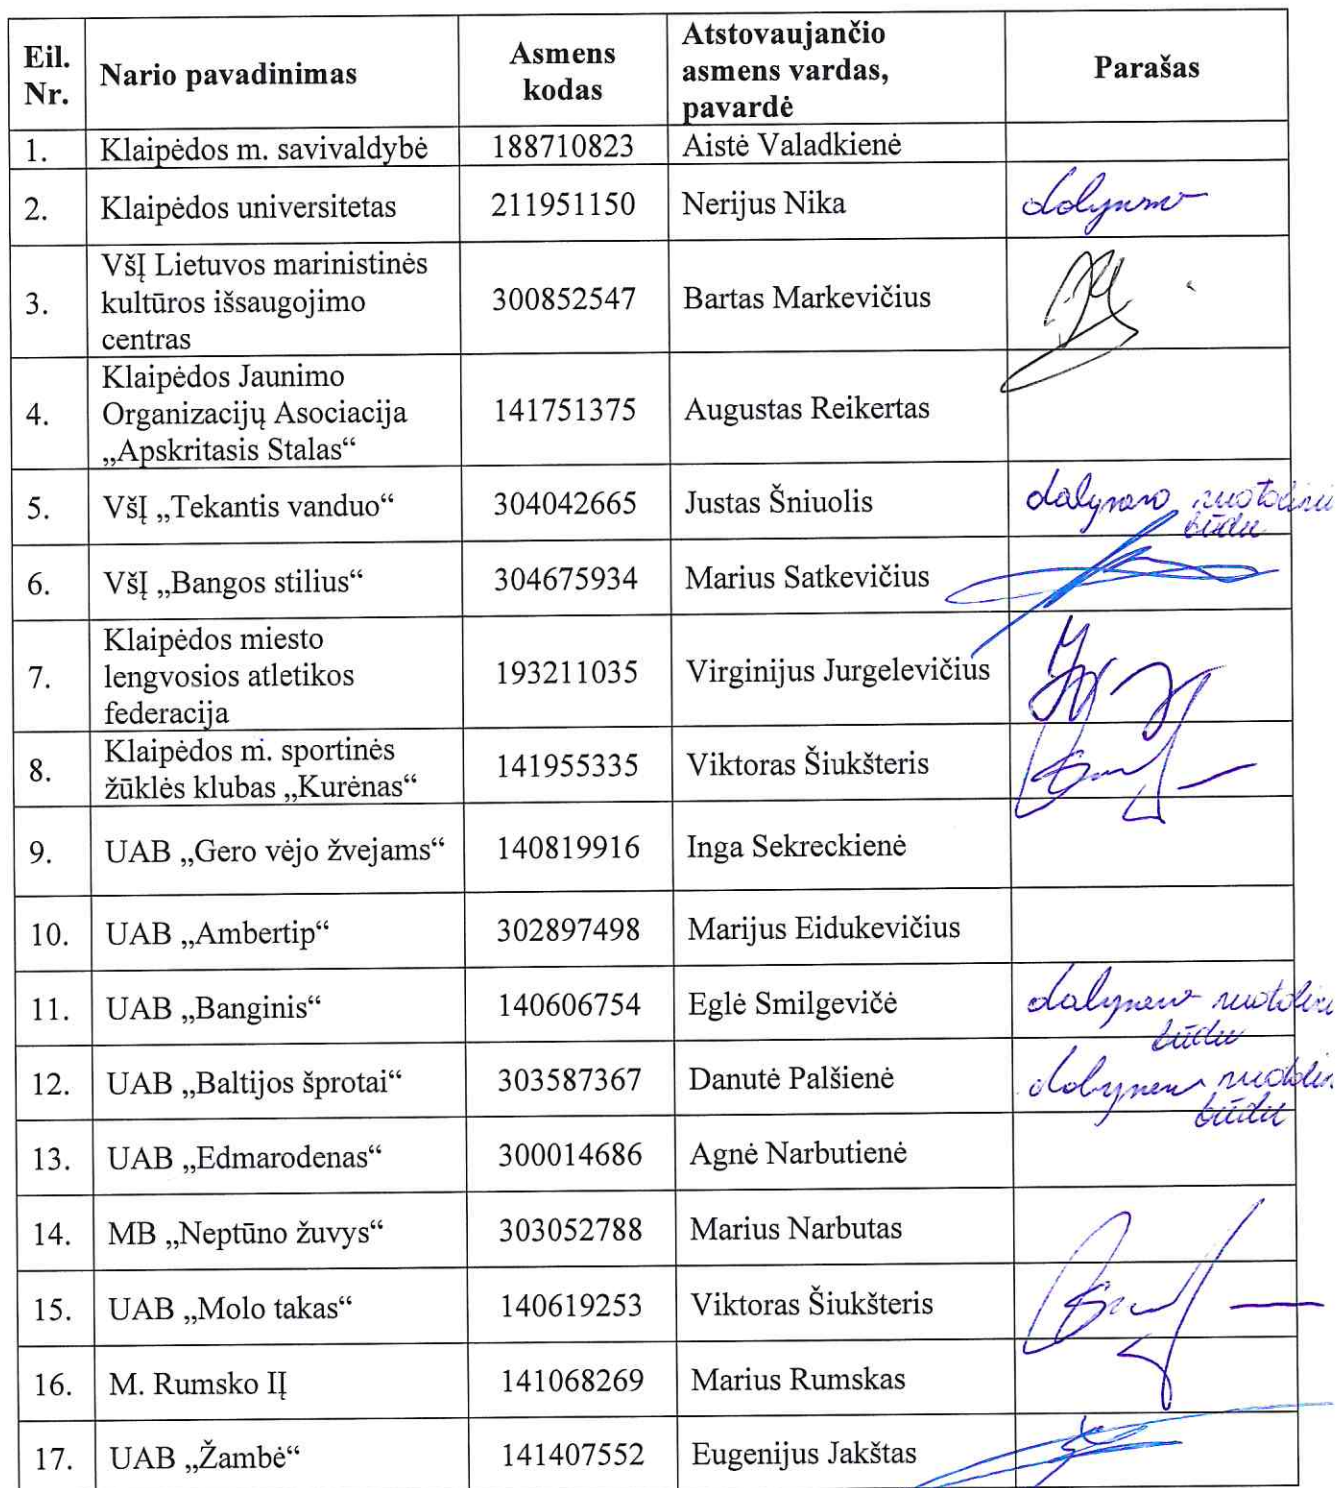 Eil. Nr. Nario pavadinimas Asmens kodas Atstovaujančio asmens vardas, pavardė Parašas
1. Klaipėdos m. savivaldybė 188710823 Aistė Valadkienė
2. Klaipėdos universitetas 211951150 Nerijus Nika
3. VšĮ Lietuvos marinistinės
kultūros išsaugojimo
centras 300852547 Bartas Markevičius
4. Klaipėdos Jaunimo
Organizacijų Asociacija
„Apskritasis Stalas“ 141751375 Augustas Reikertas
5. VšĮ „Tekantis vanduo“ 304042665 Justas Šniuolis
būdu
6. VšĮ „Bangos stilius“ 304675934 Marius Satkevičius
7. Klaipėdos miesto
lengvosios atletikos
federacija 193211035 Virginijus Jurgelevičius
8. Klaipėdos m. sportinės
žūklės klubas „Kurėnas“ 141955335 Viktoras Šiukšteris
9. UAB „Gero vėjo žvejams“ 140819916 Inga Sekreckienė
10. UAB „Ambertip“ 302897498 Marijus Eidukevičius
11. UAB „Banginis“ 140606754 Eglė Smilgevičė
būdu
12. UAB „Baltijos šprotai“ 303587367 Danutė Palšienė
būdu
13. UAB „Edmarodenas“ 300014686 Agnė Narbutienė
14. MB „Neptūno žuvys“ 303052788 Marius Narbutas
15. UAB „Molo takas“ 140619253 Viktoras Šiukšteris
16. M. Rumsko IĮ 141068269 Marius Rumskas
17. UAB „Žambė“ 141407552 Eugenijus Jakštas